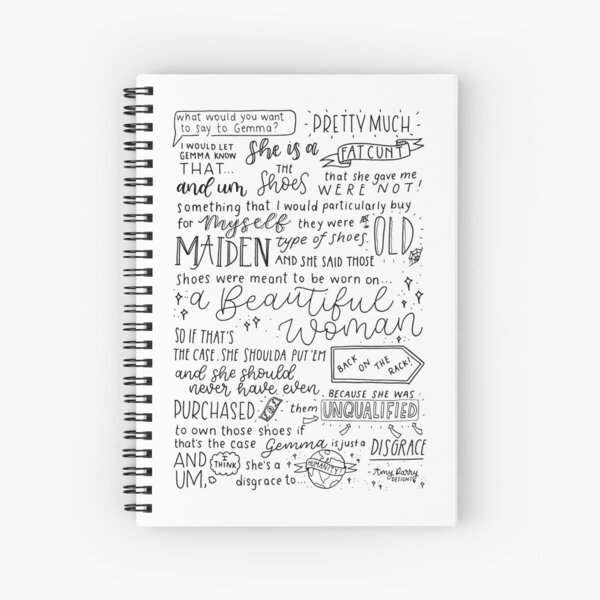 what would you want
to say to Gemma?
PRETTY MUCH
I WOULD LET
GEMMA KNOW
THAT...
She is a
FAT CUNT
and um
THE
Shoes
that she gave me
WERE NOT!
something that I would particularly buy
for Myself they were
MAIDEN type of shoes OLD
AND SHE SAID THOSE
shoes were meant to be worn on...
a Beautiful
Woman
SO IF THAT'S
THE CASE, SHE SHOULDA PUT 'EM
BACK ON THE RACK!
and she should
never have even
PURCHASED them
BECAUSE SHE WAS
UNQUALIFIED
to own those shoes if
that's the case Gemma is just a DISGRACE
AND
UM,
I THINK
she's a
disgrace to
HUMANITY!
Amy Parry
DESIGNS